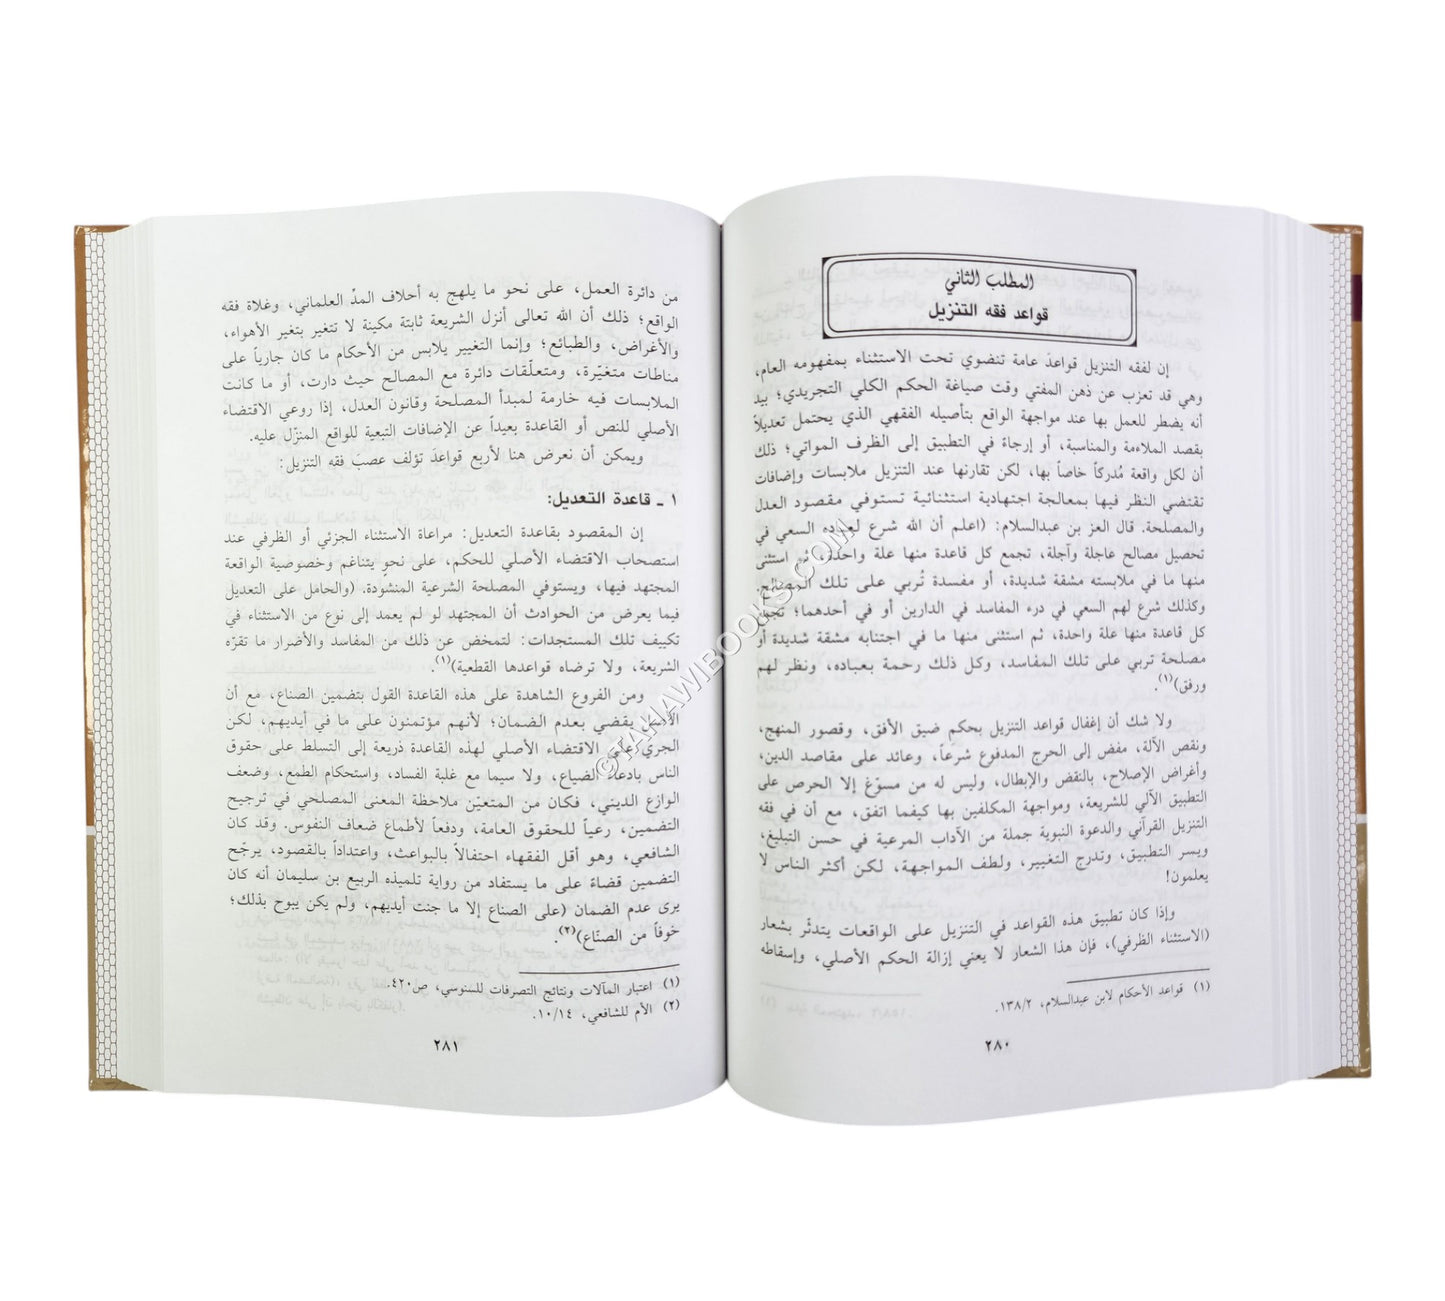 المطلب الثاني
قواعد فقه التنزيل
إن لفقه التنزيل قواعدَ عامة تنضوي تحت الاستثناء بمفهومه العام،
وهي قد تعزب عن ذهن المفتي وقت صياغة الحكم الكلي التجريدي؛ بيد
أنه يضطر للعمل بها عند مواجهة الواقع بتأصيله الفقهي الذي يحتمل تعديلاً
بقصد الملاءمة والمناسبة، أو إرجاءً في التطبيق إلى الظرف المواتي؛ ذلك
أن لكل واقعة مُدركاً خاصاً بها، لكن تقارنها عند التنزيل ملابسات وإضافات
تقتضي النظر فيها بمعالجة اجتهادية استثنائية تستوفي مقصود العدل
والمصلحة. قال العز بن عبدالسلام: (اعلم أن الله شرع لعباده السعي في
تحصيل مصالح عاجلة وآجلة، تجمع كل قاعدة منها علة واحدة، ثم استثنى
منها ما في ملابسته مشقة شديدة، أو مفسدة تُربي على تلك المصالح.
وكذلك شرع لهم السعي في درء المفاسد في الدارين أو في أحدهما؛ تجمع
كل قاعدة منها علة واحدة، ثم استثنى منها ما في اجتنابه مشقة شديدة أو
مصلحة تربي على تلك المفاسد، وكل ذلك رحمة بعباده، ونظر لهم
ورفق)(١).
ولا شك أن إغفال قواعد التنزيل بحكم ضيق الأفق، وقصور المنهج،
ونقص الآلة، مفض إلى الحرج المدفوع شرعاً، وعائد على مقاصد الدين،
وأغراض الإصلاح، بالنقض والإبطال، وليس له من مسوّغ إلا الحرص على
التطبيق الآلي للشريعة، ومواجهة المكلفين بها كيفما اتفق، مع أن في فقه
التنزيل القرآني والدعوة النبوية جملة من الآداب المرعية في حسن التبليغ،
ويسر التطبيق، وتدرج التغيير، ولطف المواجهة، لكن أكثر الناس لا
يعلمون!
وإذا كان تطبيق هذه القواعد في التنزيل على الواقعات يتدثّر بشعار
(الاستثناء الظرفي)، فإن هذا الشعار لا يعني إزالة الحكم الأصلي، وإسقاطه
(١) قواعد الأحكام لابن عبدالسلام، ١٣٨/٢.
٢٨٠
من دائرة العمل، على نحو ما يلهج به أحلاف المدِّ العلماني، وغلاة فقه
الواقع؛ ذلك أن الله تعالى أنزل الشريعة ثابتة مكينة لا تتغير بتغير الأهواء،
والأغراض، والطبائع؛ وإنما التغيير يلابس من الأحكام ما كان جارياً على
مناطات متغيّرة، ومتعلّقات دائرة مع المصالح حيث دارت، أو ما كانت
الملابسات فيه خارمة لمبدأ المصلحة وقانون العدل، إذا روعي الاقتضاء
الأصلي للنص أو القاعدة بعيداً عن الإضافات التبعية للواقع المنزّل عليه.
ويمكن أن نعرض هنا لأربع قواعدَ تؤلف عصبَ فقه التنزيل:
١ ـ قاعدة التعديل:
إن المقصود بقاعدة التعديل: مراعاة الاستثناء الجزئي أو الظرفي عند
استصحاب الاقتضاء الأصلي للحكم، على نحوٍ يتناغم وخصوصية الواقعة
المجتهد فيها، ويستوفي المصلحة الشرعية المنشودة. (والحامل على التعديل
فيما يعرض من الحوادث أن المجتهد لو لم يعمد إلى نوع من الاستثناء في
تكييف تلك المستجدات: لتمخض عن ذلك من المفاسد والأضرار ما تقرّه
الشريعة، ولا ترضاه قواعدها القطعية)(١).
ومن الفروع الشاهدة على هذه القاعدة القول بتضمين الصناع، مع أن
الأصل يقضي بعدم الضمان؛ لأنهم مؤتمنون على ما في أيديهم، لكن
الجري على الاقتضاء الأصلي لهذه القاعدة ذريعة إلى التسلط على حقوق
الناس بادعاء الضياع، ولا سيما مع غلبة الفساد، واستحكام الطمع، وضعف
الوازع الديني، فكان من المتعيّن ملاحظة المعنى المصلحي في ترجيح
التضمين، رعياً للحقوق العامة، ودفعاً لأطماع ضعاف النفوس. وقد كان
الشافعي، وهو أقل الفقهاء احتفالاً بالبواعث، واعتداداً بالقصود، يرجّح
التضمين قضاءً على ما يستفاد من رواية تلميذه الربيع بن سليمان أنه كان
يرى عدم الضمان (على الصناع إلا ما جنت أيديهم، ولم يكن يبوح بذلك؛
خوفاً من الصنّاع)(٢).
(١) اعتبار المآلات ونتائج التصرفات للسنوسي، ص٤٢٠.
(٢) الأم للشافعي، ١٠/١٤.
٢٨١
©TAHAWIBOOKS.COM